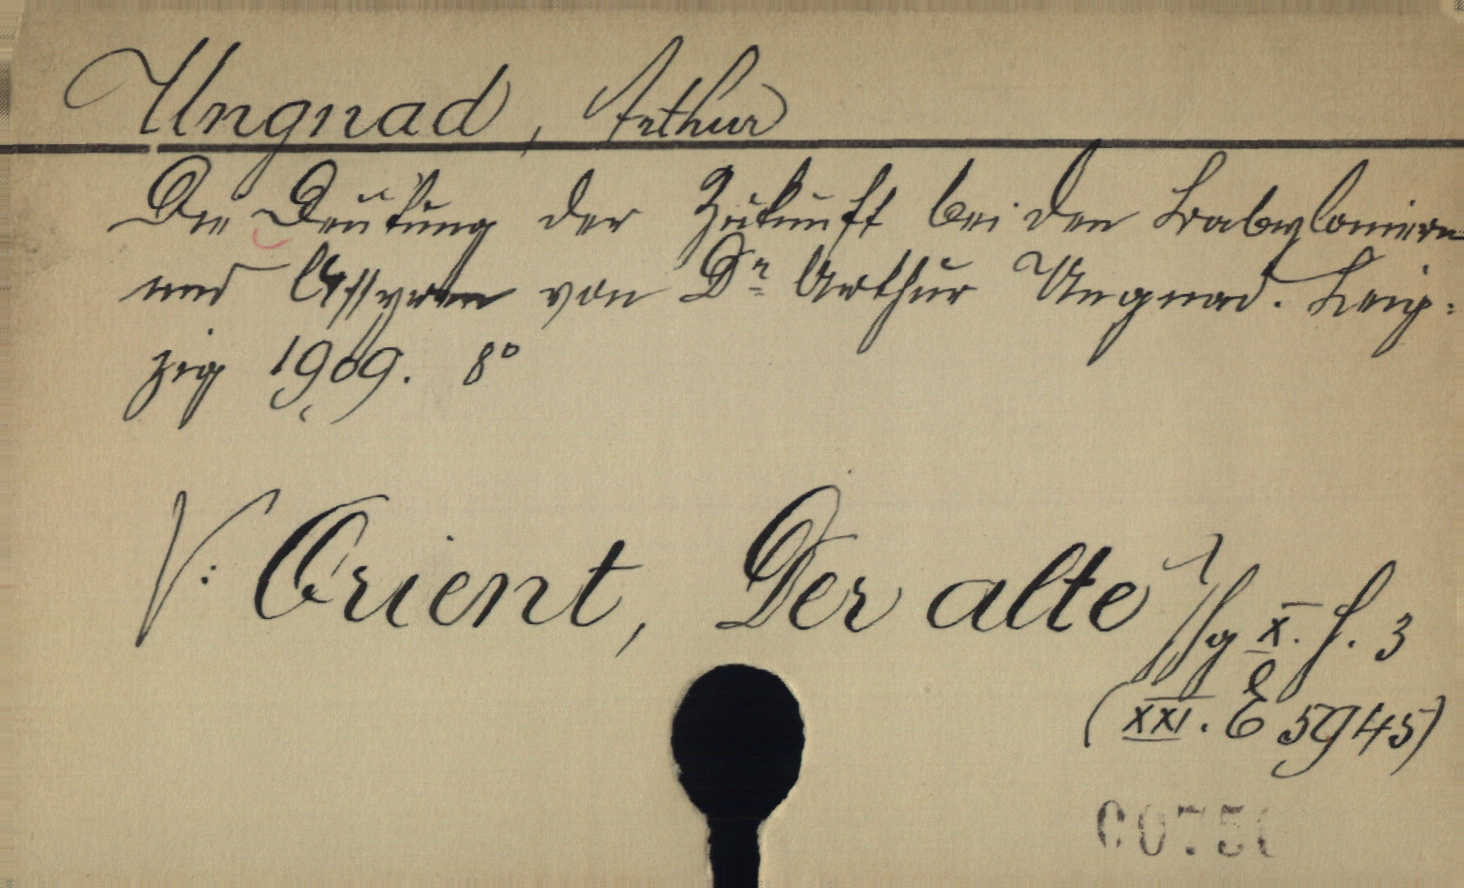 Ungnad, Arthur
Die Deutung der Zukunft bei den Babyloniern
und Assyrern von Dr Arthur Ungnad. Leip-
zig 1909. 8°
V: Orient, Der alte
Jg X. H. 3
(XXI. E 5945)
0075